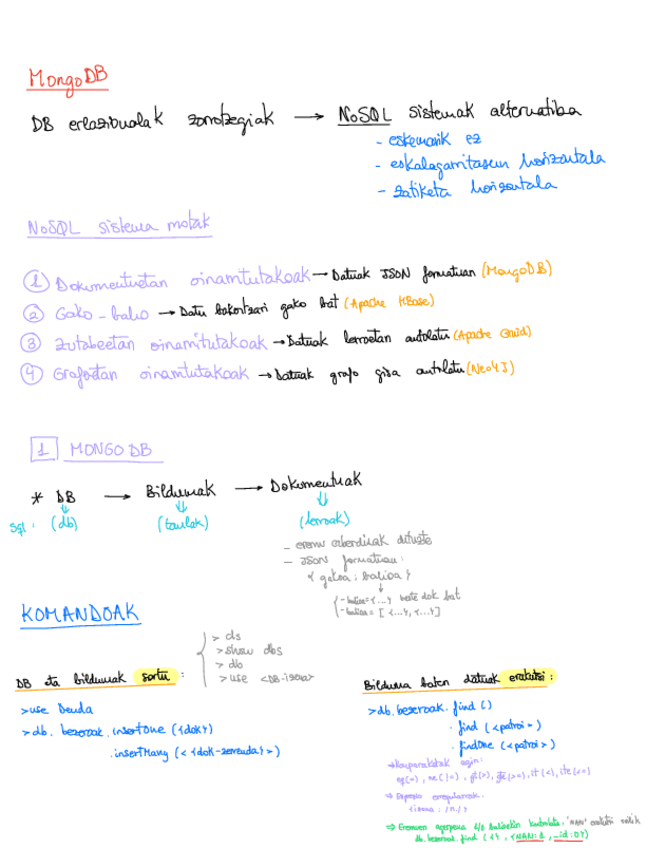 MongoDB
DB erlazionalak zorrotzegiak → NoSQL sistemak alternatiba
- eskemarik ez
- eskalagarritasun horizontala
- zatiketa horizontala
NoSQL sistema motak
① Dokumentuetan oinarritutakoak → Datuak JSON formatuan (MongoDB)
② Gako-balio → Datu bakoitzari gako bat (Apache HBase)
③ Zutabeetan oinarritutakoak → Datuak lerroetan antolatu (Apache Druid)
④ Grafoetan oinarritutakoak → Datuak grafo gisa antolatu (Neo4J)
1 MONGO DB
* DB → Bildumak → Dokumentuak
Sql: (db) (taulak) (lerroak)
- eremu ezberdinak dituzte
- JSON formatuan:
{ gakoa: balioa }
- balioa = {...} beste dok bat
- balioa = [ {...}, {...} ]
KOMANDOAK
> cls
> show dbs
> db
> use <DB-izena>
DB eta bildumak sortu:
> use Denda
> db. bezeroak. insertOne ({dok})
. insertMany (< {dok-zerrenda} >)
Bilduma baten datuak erakutsi:
> db. bezeroak. find ()
. find (<patroi>)
. findOne (<patroi>)
→ Konparaketak egin:
eq(=), ne(!=), gt(>), gte(>=), lt(<), lte(<=)
⇒ Espresio erregularrak.
⇒ Eremuen agerpena 1/0 balioekin kontrolatu. 'NAN' erakutsi
db. bezeroak. find ({}, {NAN: 1, _id: 0})